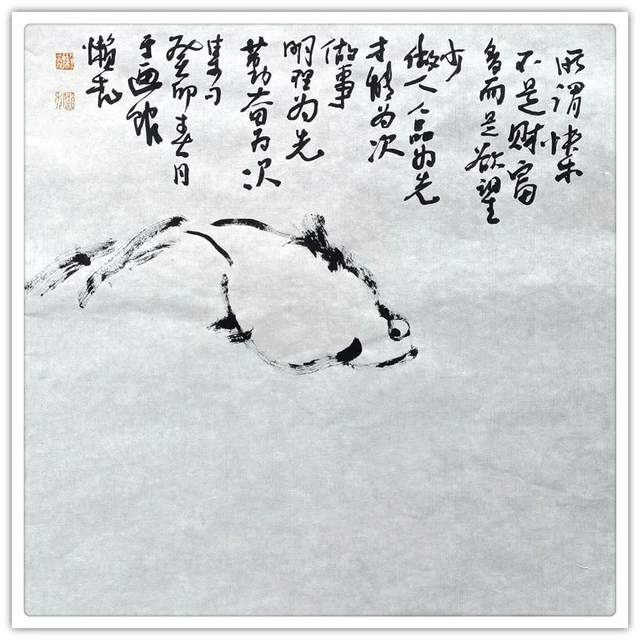 所谓快乐
不是财富
多而是欲望
少
做人人品为先
才能为次
做事
明理为先
勤奋为次
集句
癸卯春月
于画馆
懒